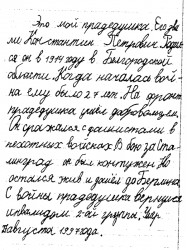 Это мой прадедушка. Его зва
ли Константин Петрович. Родил
ся он в 1914 году в Белгородской
области. Когда началась вой-
на ему было 27 лет. На фронт
прадедушка ушёл добровольцем.
Он сражался с фашистами в
пехотных войсках. В бою за Ста
линград он был контужен. Но
остался жив и дошёл до Берлина.
С войны прадедушка вернулся
инвалидом 2-ой группы. Умер
августа 1997 года.